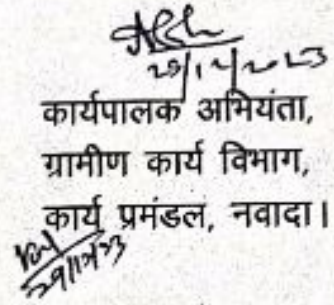 29/12/2023
कार्यपालक अभियंता,
ग्रामीण कार्य विभाग,
कार्य प्रमंडल, नवादा।
29/12/23